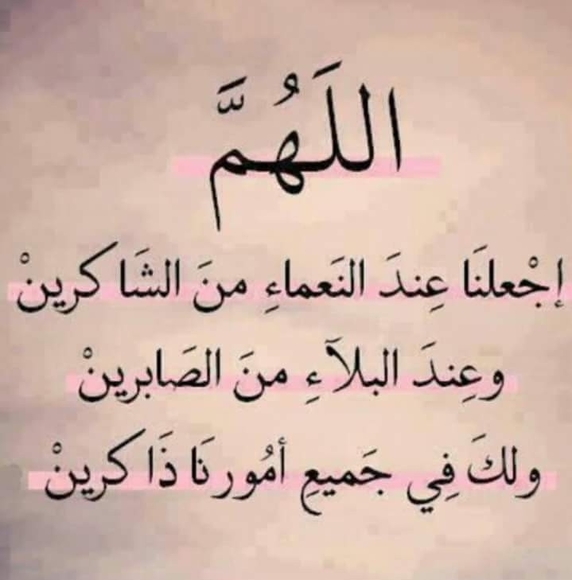 اللَهُمَّ
إجْعلنَا عِندَ النَعماءِ منَ الشَاكرينْ
وعِندَ البلآءِ منَ الصَابرينْ
ولكَ فِي جَميعِ أمُورنَا ذَاكرينْ